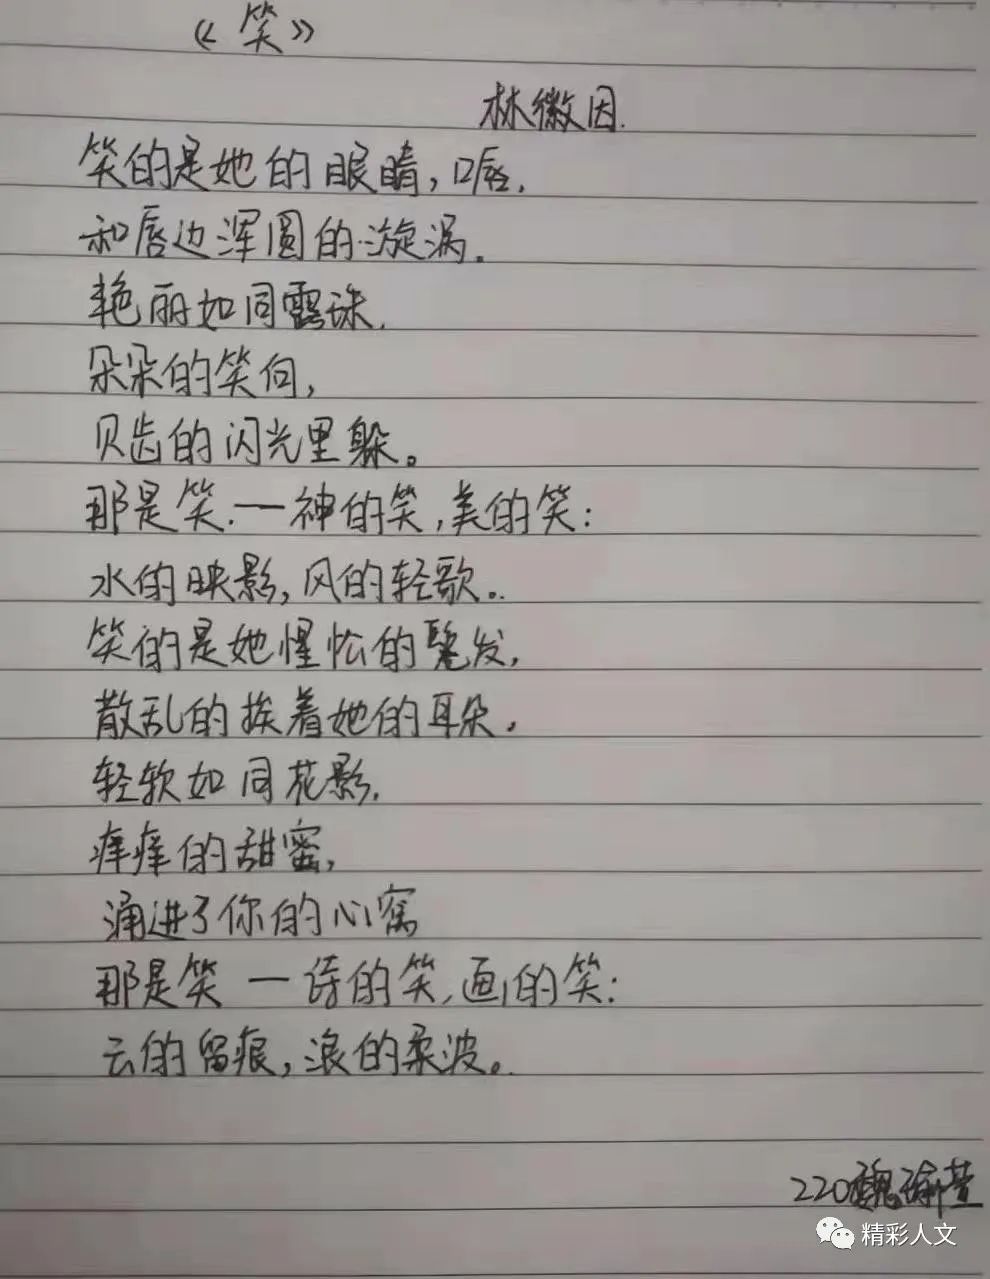 《笑》
林徽因.
笑的是她的眼睛,口唇,
和唇边浑圆的漩涡。
艳丽如同露珠,
朵朵的笑向,
贝齿的闪光里躲。
那是笑.一神的笑,美的笑:
水的映影,风的轻歌。
笑的是她惺忪的鬈发,
散乱的挨着她的耳朵,
轻软如同花影,
痒痒的甜蜜,
涌进了你的心窝
那是笑一诗的笑,画的笑:
云的留痕,浪的柔波。
220魏瑜萱
精彩人文